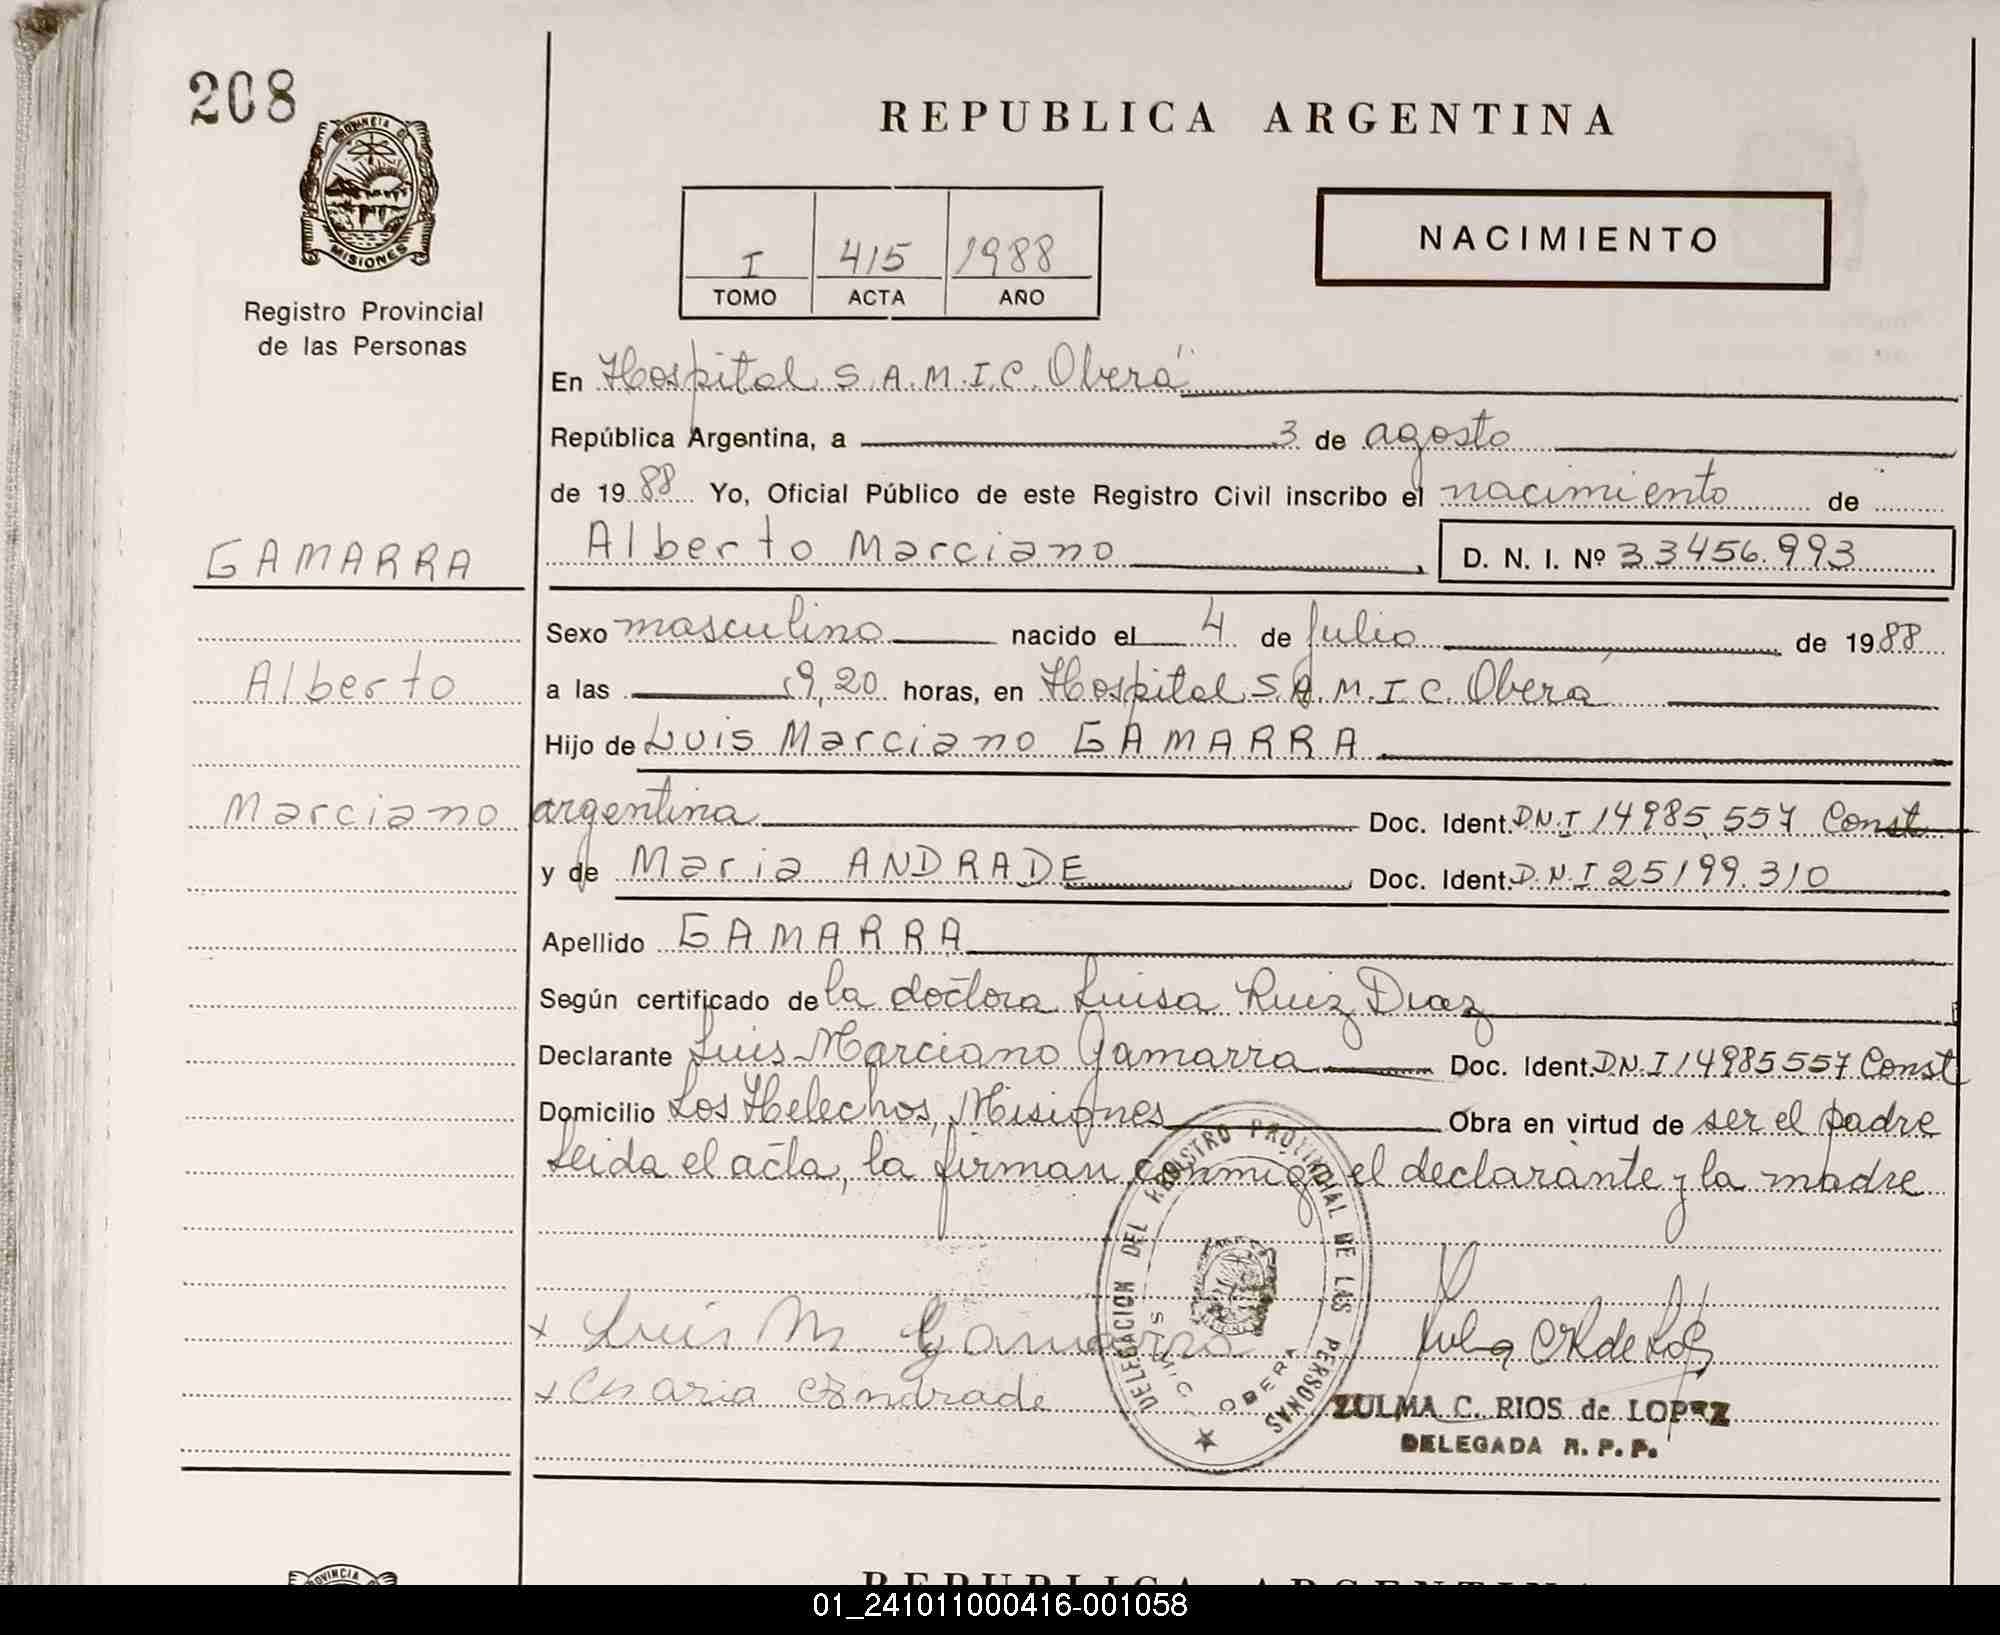 208
PROVINCIA DE
MISIONES
Registro Provincial
de las Personas
REPUBLICA ARGENTINA
I 415 1988
TOMO ACTA AÑO
NACIMIENTO
En Hospital S.A.M.I.C. Oberá
República Argentina, a 3 de agosto
de 1988 Yo, Oficial Público de este Registro Civil inscribo el nacimiento de
GAMARRA
Alberto Marciano, D. N. I. Nº 33456.993
Sexo masculino nacido el 4 de julio de 1988
Alberto
a las 9,20 horas, en Hospital S.A.M.I.C. Oberá
Hijo de Luis Marciano GAMARRA
Marciano
argentina Doc. Ident. D.N.I 14985.557 Const
y de Maria ANDRADE Doc. Ident. D.N.I 25199.310
Apellido GAMARRA
Según certificado de la doctora Luisa Ruiz Diaz
Declarante Luis Marciano Gamarra Doc. Ident. D.N.I 14985557 Const
Domicilio Los Helechos, Misiones Obra en virtud de ser el padre
Leida el acta, la firman conmigo el declarante y la madre
DELEGACION DEL REGISTRO PROVINCIAL DE LAS PERSONAS
OBERA
x Luis M. Gamarra
x Maria Andrade
ZULMA C. RIOS de LOPEZ
DELEGADA R. P. P.
REPUBLICA ARGENTINA
01_241011000416-001058